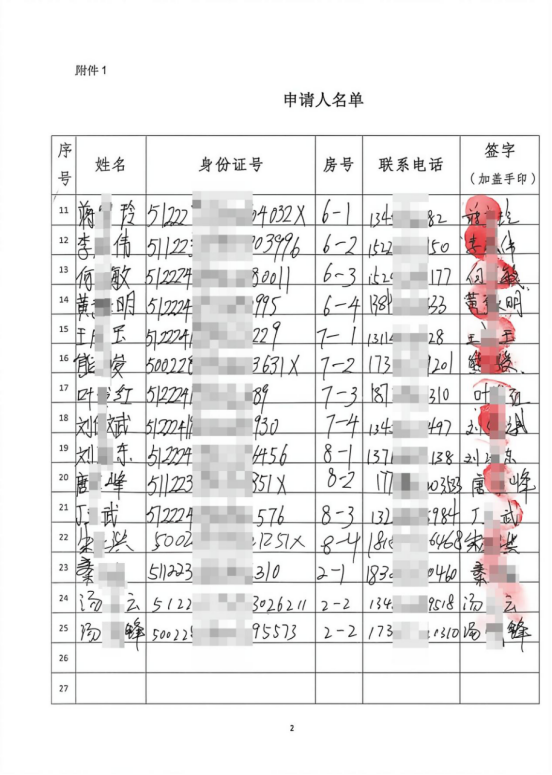 附件1
申请人名单
序号 姓名 身份证号 房号 联系电话 签字（加盖手印）
11 蒋 玲 51222 04032X 6-1 134 82 蒋 玲
12 李 伟 511223 03996 6-2 1522 150 李 伟
13 何 敏 512224 80011 6-3 152 177 何 敏
14 黄 明 512224 995 6-4 138 33 黄 明
15 王 玉 512224 229 7-1 1311 28 王 玉
16 熊 俊 500228 3631X 7-2 173 1201 熊 俊
17 叶 红 512224 89 7-3 187 310 叶 红
18 刘 斌 512224 930 7-4 134 497 刘 斌
19 刘 东 512224 6456 8-1 137 138 刘 东
20 唐 峰 511223 351X 8-2 177 唐 峰
21 丁 武 512224 576 8-3 132 5984 丁 武
22 宋 5002 1251X 8-4 181 6468 宋
23 秦 511223 310 2-1 183 0460 秦
24 汤 云 5122 3026211 2-2 134 9518 汤 云
25 汤 锋 50022 95573 2-2 173 310 汤 锋
26
27
2